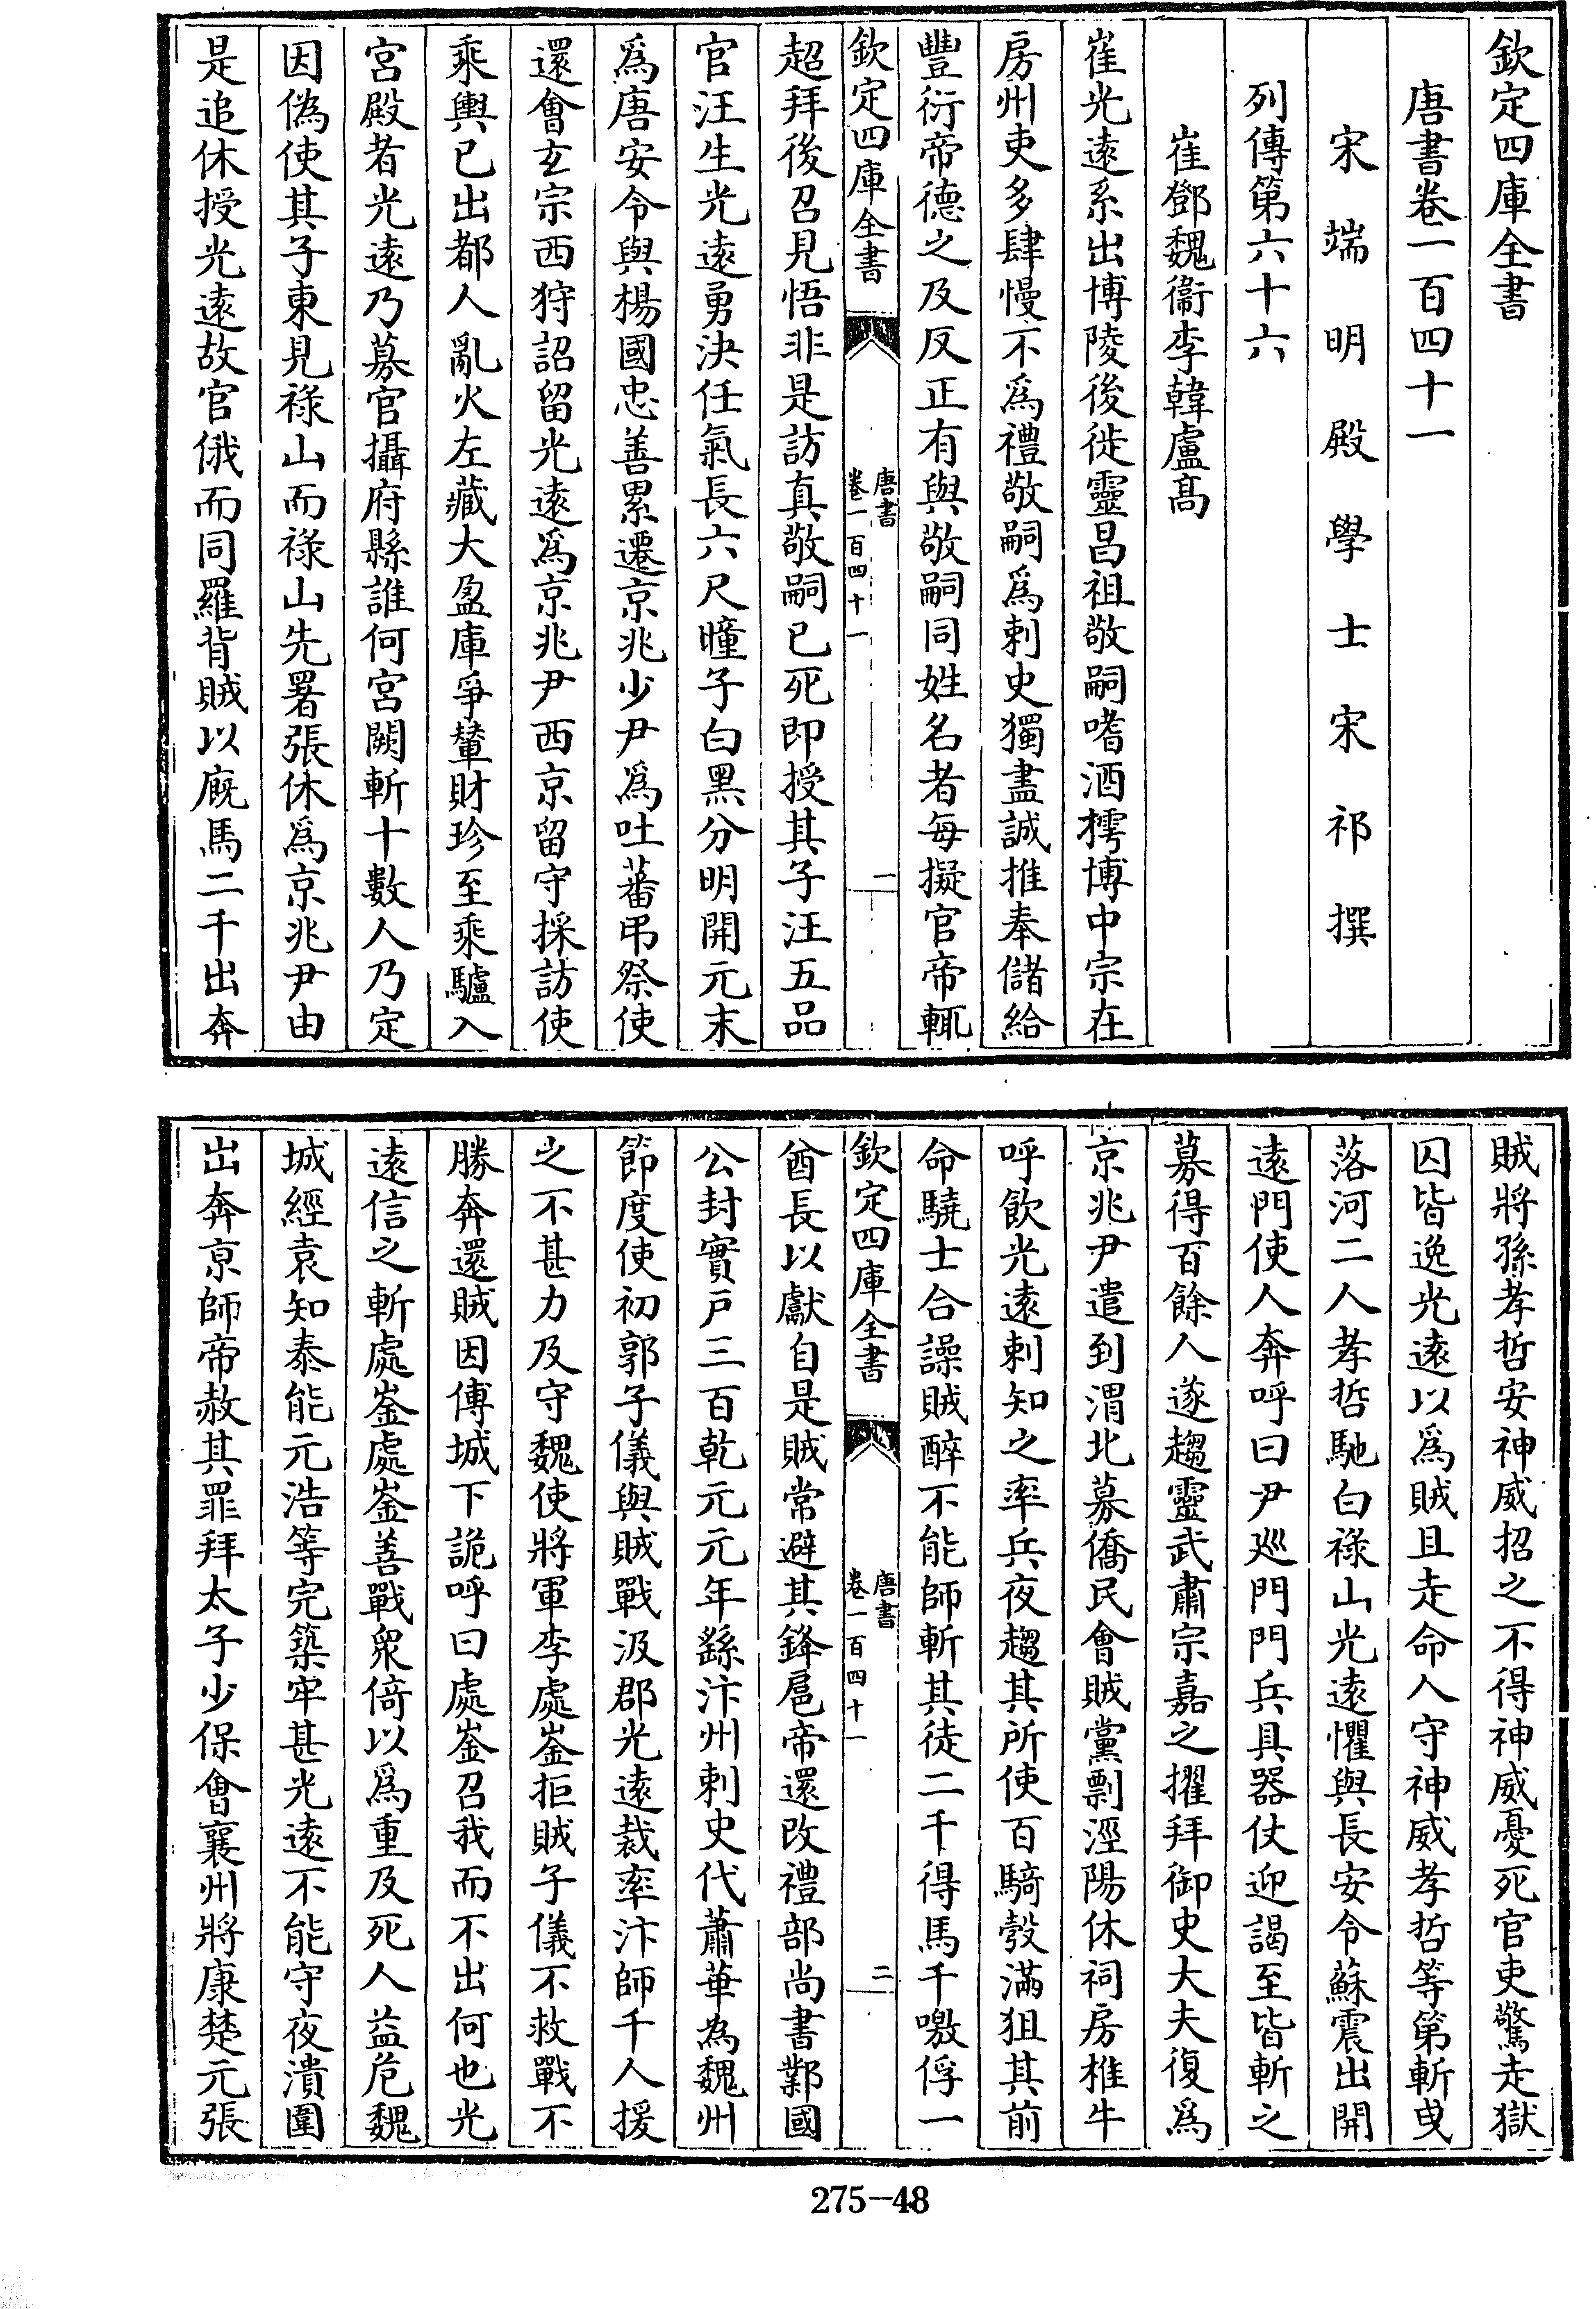 欽定四庫全書
唐書卷一百四十一
宋端明殿學士宋祁撰
列傳第六十六
崔鄧魏衞李韓盧髙
崔光逺系出博陵後徙靈昌祖敬嗣嗜酒摴博中宗在
房州吏多肆慢不爲禮敬嗣爲刺史獨盡誠推奉儲給
豐衍帝德之及反正有與敬嗣同姓名者每擬官帝輒
欽定四庫全書
唐書
卷一百四十一
一
超拜後召見悟非是訪真敬嗣已死即授其子汪五品
官汪生光逺勇決任氣長六尺瞳子白黑分明開元末
爲唐安令與楊國忠善累遷京兆少尹爲吐蕃弔祭使
還會玄宗西狩詔留光逺爲京兆尹西京留守採訪使
乘輿已出都人亂火左藏大盈庫爭輦財珍至乘驢入
宮殿者光逺乃募官攝府縣誰何宮闕斬十數人乃定
因偽使其子東見禄山而禄山先署張休爲京兆尹由
是追休授光逺故官俄而同羅背賊以廐馬二千出奔
賊將孫孝哲安神威招之不得神威憂死官吏驚走獄
囚皆逸光逺以爲賊且走命人守神威孝哲等第斬曵
落河二人孝哲馳白禄山光逺懼與長安令蘇震出開
逺門使人奔呼曰尹廵門門兵具器仗迎謁至皆斬之
募得百餘人遂趨靈武肅宗嘉之擢拜御史大夫復爲
京兆尹遣到渭北募僑民會賊黨剽涇陽休祠房椎牛
呼飲光逺刺知之率兵夜趨其所使百騎彀滿狙其前
命驍士合譟賊醉不能師斬其徒二千得馬千噭俘一
欽定四庫全書
唐書
卷一百四十一
二
酋長以獻自是賊常避其鋒扈帝還改禮部尚書鄴國
公封實戸三百乾元元年繇汴州刺史代蕭華為魏州
節度使初郭子儀與賊戰汲郡光逺裁率汴師千人援
之不甚力及守魏使將軍李處崟拒賊子儀不救戰不
勝奔還賊因傅城下詭呼曰處崟召我而不出何也光
逺信之斬處崟處崟善戰衆倚以爲重及死人益危魏
城經袁知泰能元浩等完築牢甚光逺不能守夜潰圍
出奔京師帝赦其罪拜太子少保會襄州將康楚元張
275-48